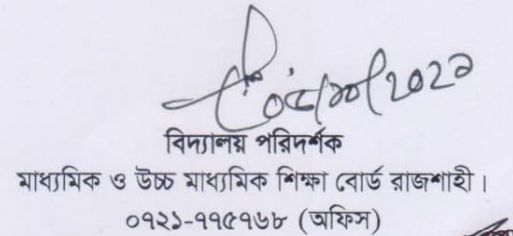 বিদ্যালয় পরিদর্শক
মাধ্যমিক ও উচ্চ মাধ্যমিক শিক্ষা বোর্ড রাজশাহী।
০৭২১-৭৭৫৭৬৮ (অফিস)